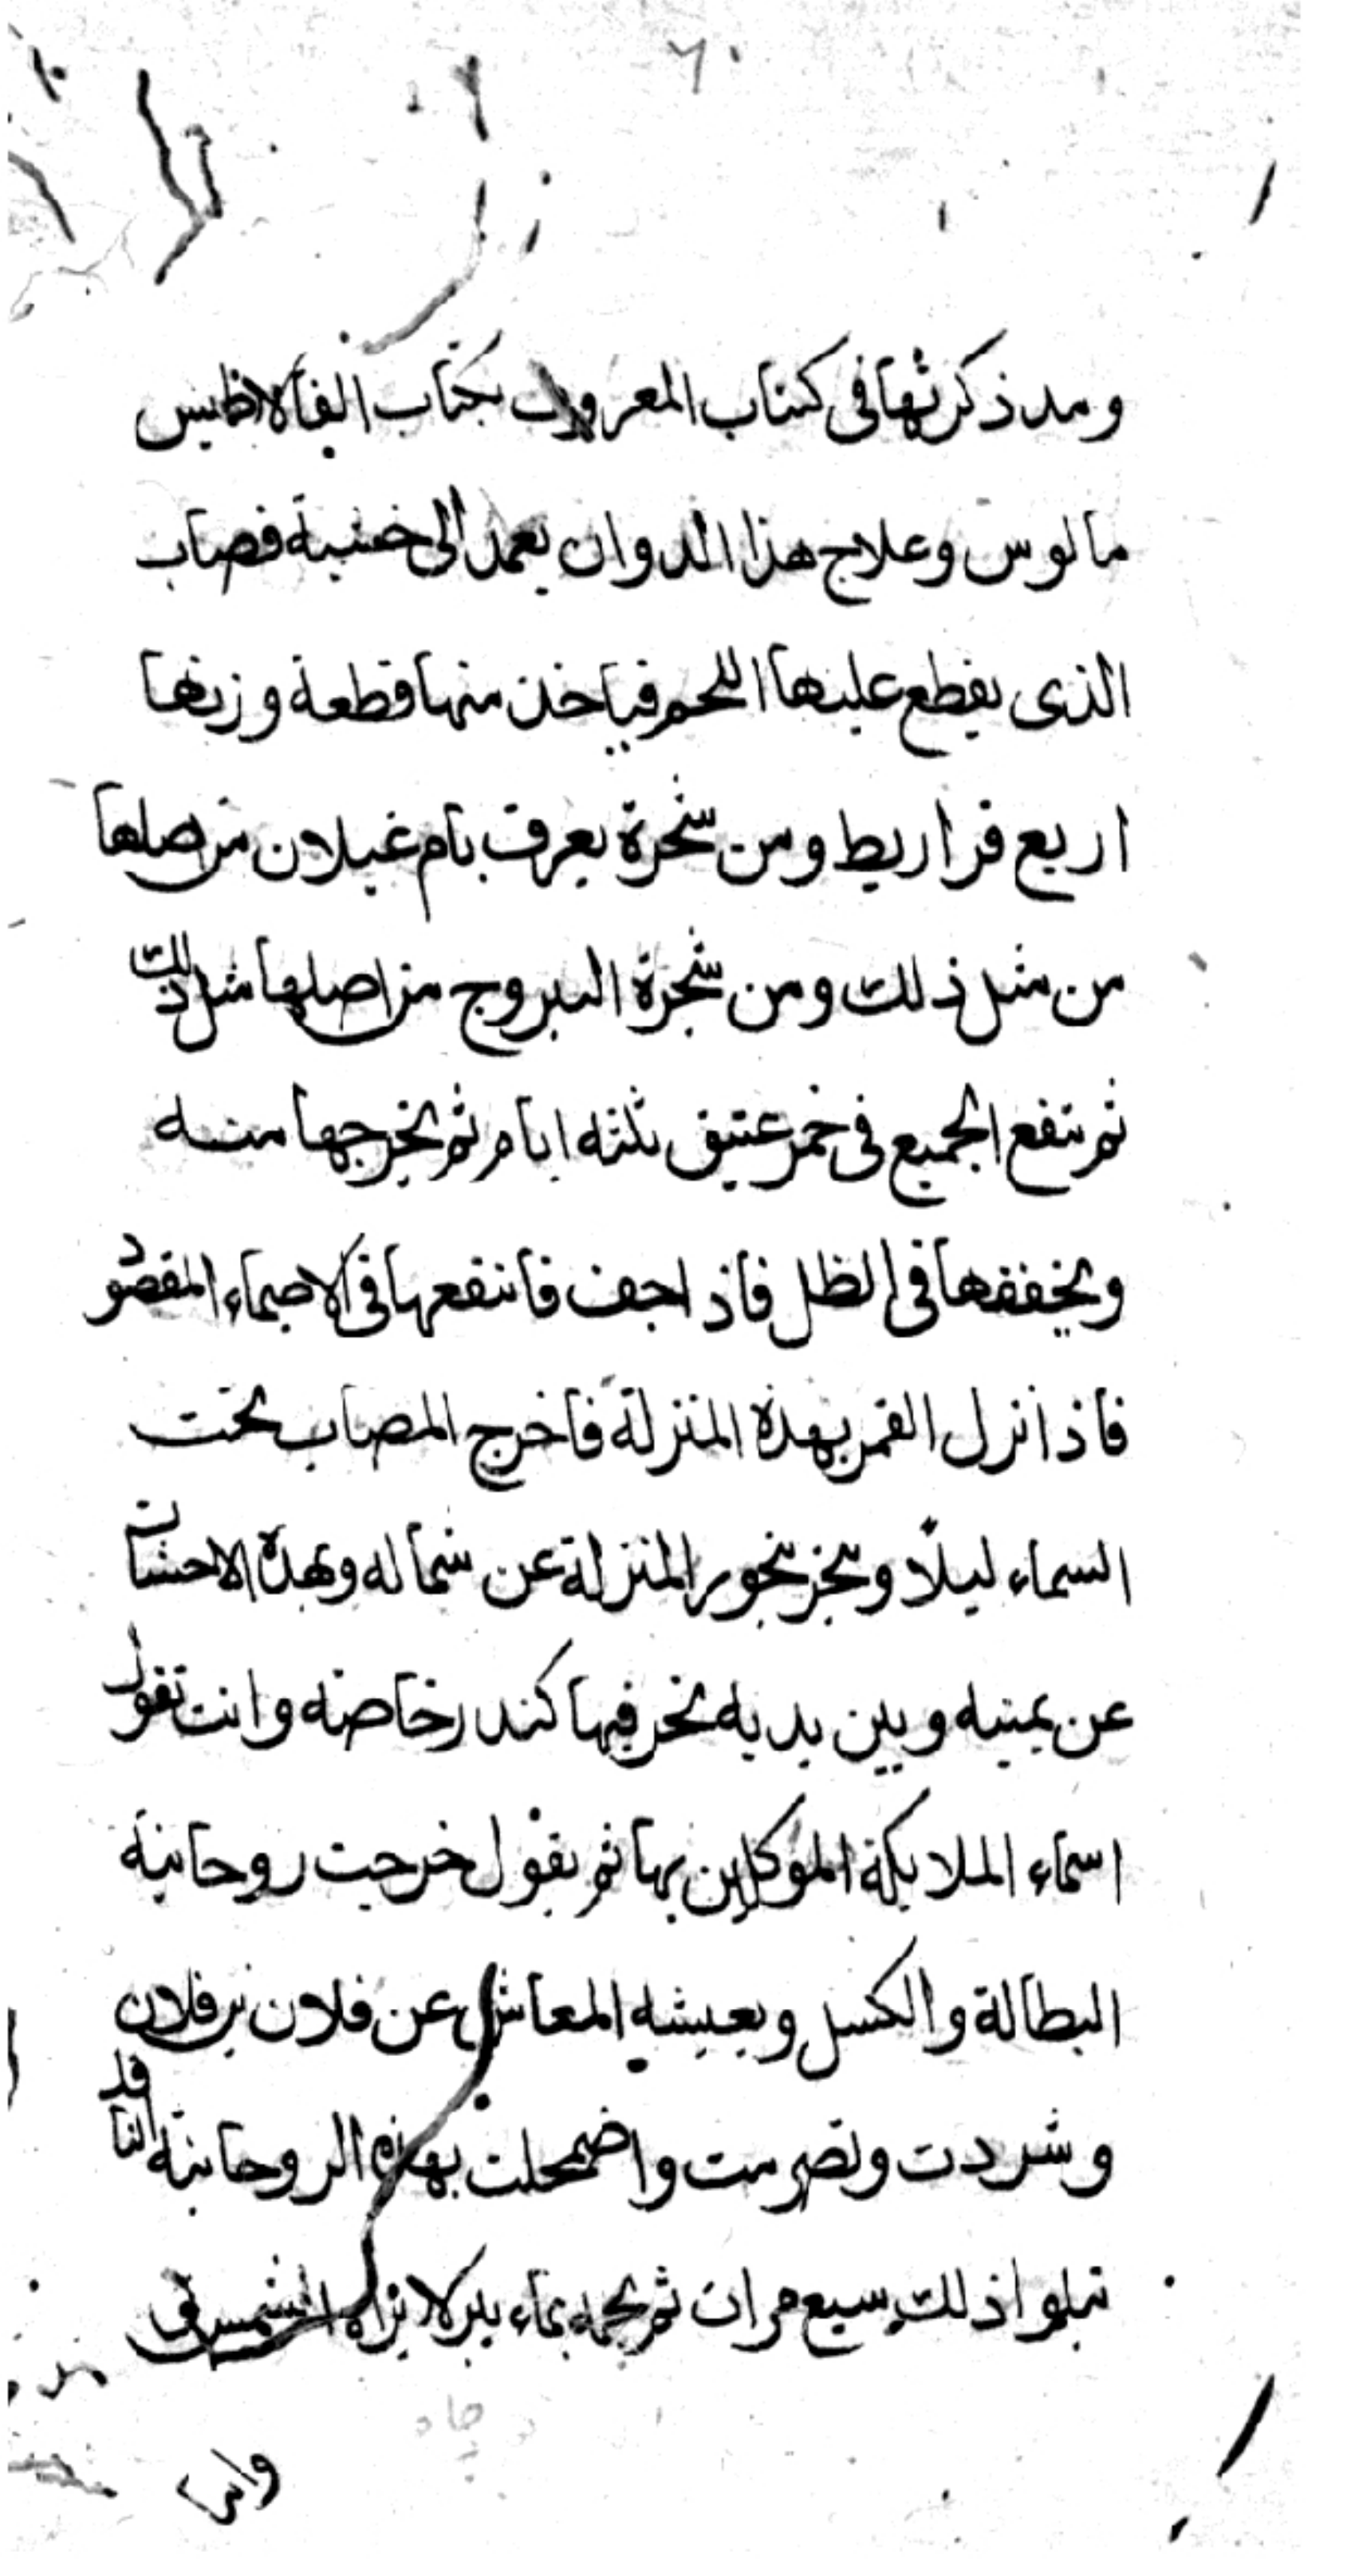 وقد ذكرتها في كتاب المعروف بكتاب الفالاطيس
مالوس وعلاج هذا الدوا ان يعمد الى خشبة قصاب
الذى يقطع عليها اللحم فياخذ منها قطعة وزنها
اربع قراريط ومن شجرة يعرف بام غيلان من اصلها
من مثل ذلك ومن شجرة اليبروج من اصلها مثل ذلك
ثم تنقع الجميع فى خمر عتيق ثلثه ايام ثم يخرجها منه
ويخففها فى الظل فاذا جف فانقعها فى الاصماء المقصود
فاذا نزل القمر بهذه المنزلة فاخرج المصاب تحت
السماء ليلا وبخر بخور المنزلة عن شماله وبهذه الاخشاب
عن يمينه وبين يديه بخر فيها كندر خاصة وانت تقول
اسماء الملايكة الموكلين بها ثم يقول خرجت روحانية
البطالة والكسل وبعيشه المعاش عن فلان بن فلان
وشردت وتصرمت واضمحلت بهذه الروحانية النافذ
تتلوا ذلك سبع مرات ثم يحمه بماء بير لا تراه الشمس فى